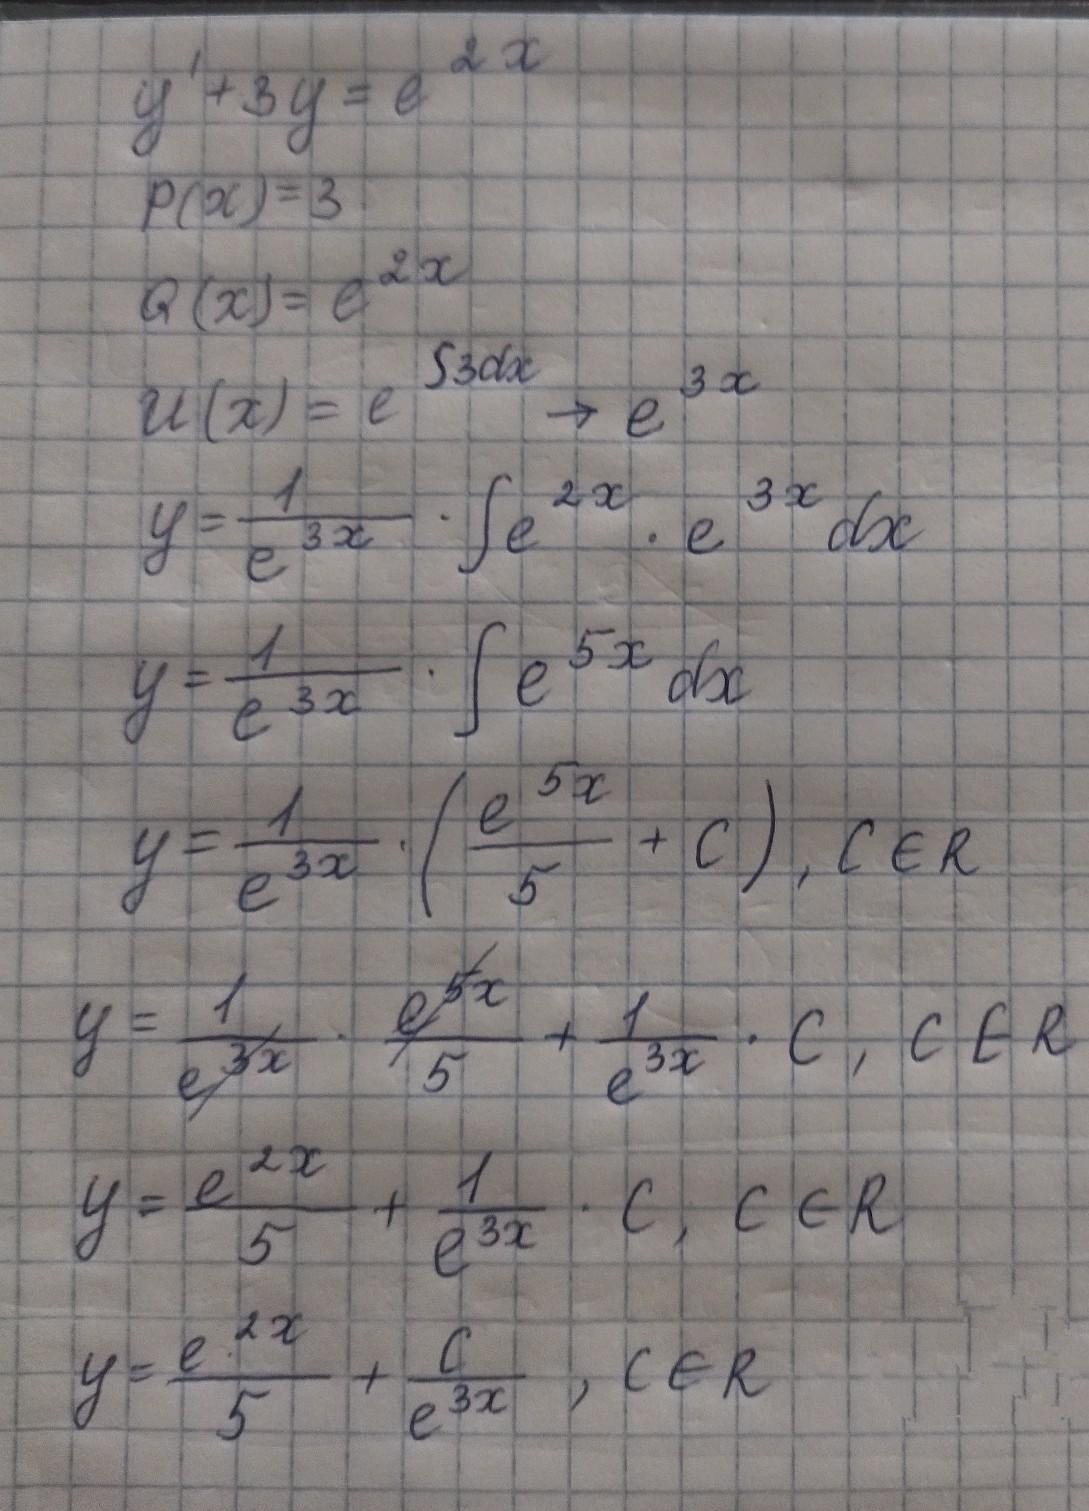 y' + 3y = e^{2x}
P(x) = 3
Q(x) = e^{2x}
u(x) = e^{∫3dx} → e^{3x}
y = \frac{1}{e^{3x}} · ∫ e^{2x} · e^{3x} dx
y = \frac{1}{e^{3x}} · ∫ e^{5x} dx
y = \frac{1}{e^{3x}} · (\frac{e^{5x}}{5} + C), C ∈ R
y = \frac{1}{e^{3x}} · \frac{e^{5x}}{5} + \frac{1}{e^{3x}} · C, C ∈ R
y = \frac{e^{2x}}{5} + \frac{1}{e^{3x}} · C, C ∈ R
y = \frac{e^{2x}}{5} + \frac{C}{e^{3x}}, C ∈ R